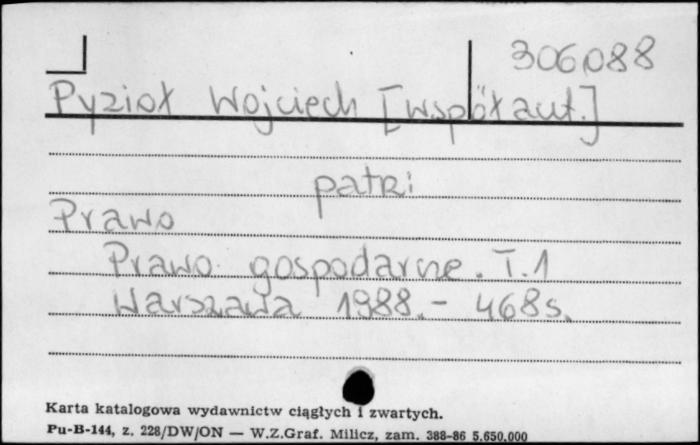 306,088
Pyzioł Wojciech [współaut.]
patrz
Prawo
Prawo gospodarcze. T.1
Warszawa 1988. - 468 s.
Karta katalogowa wydawnictw ciągłych i zwartych.
Pu-B-144, z. 228/DW/ON — W.Z.Graf. Milicz, zam. 388-86 5.650.000